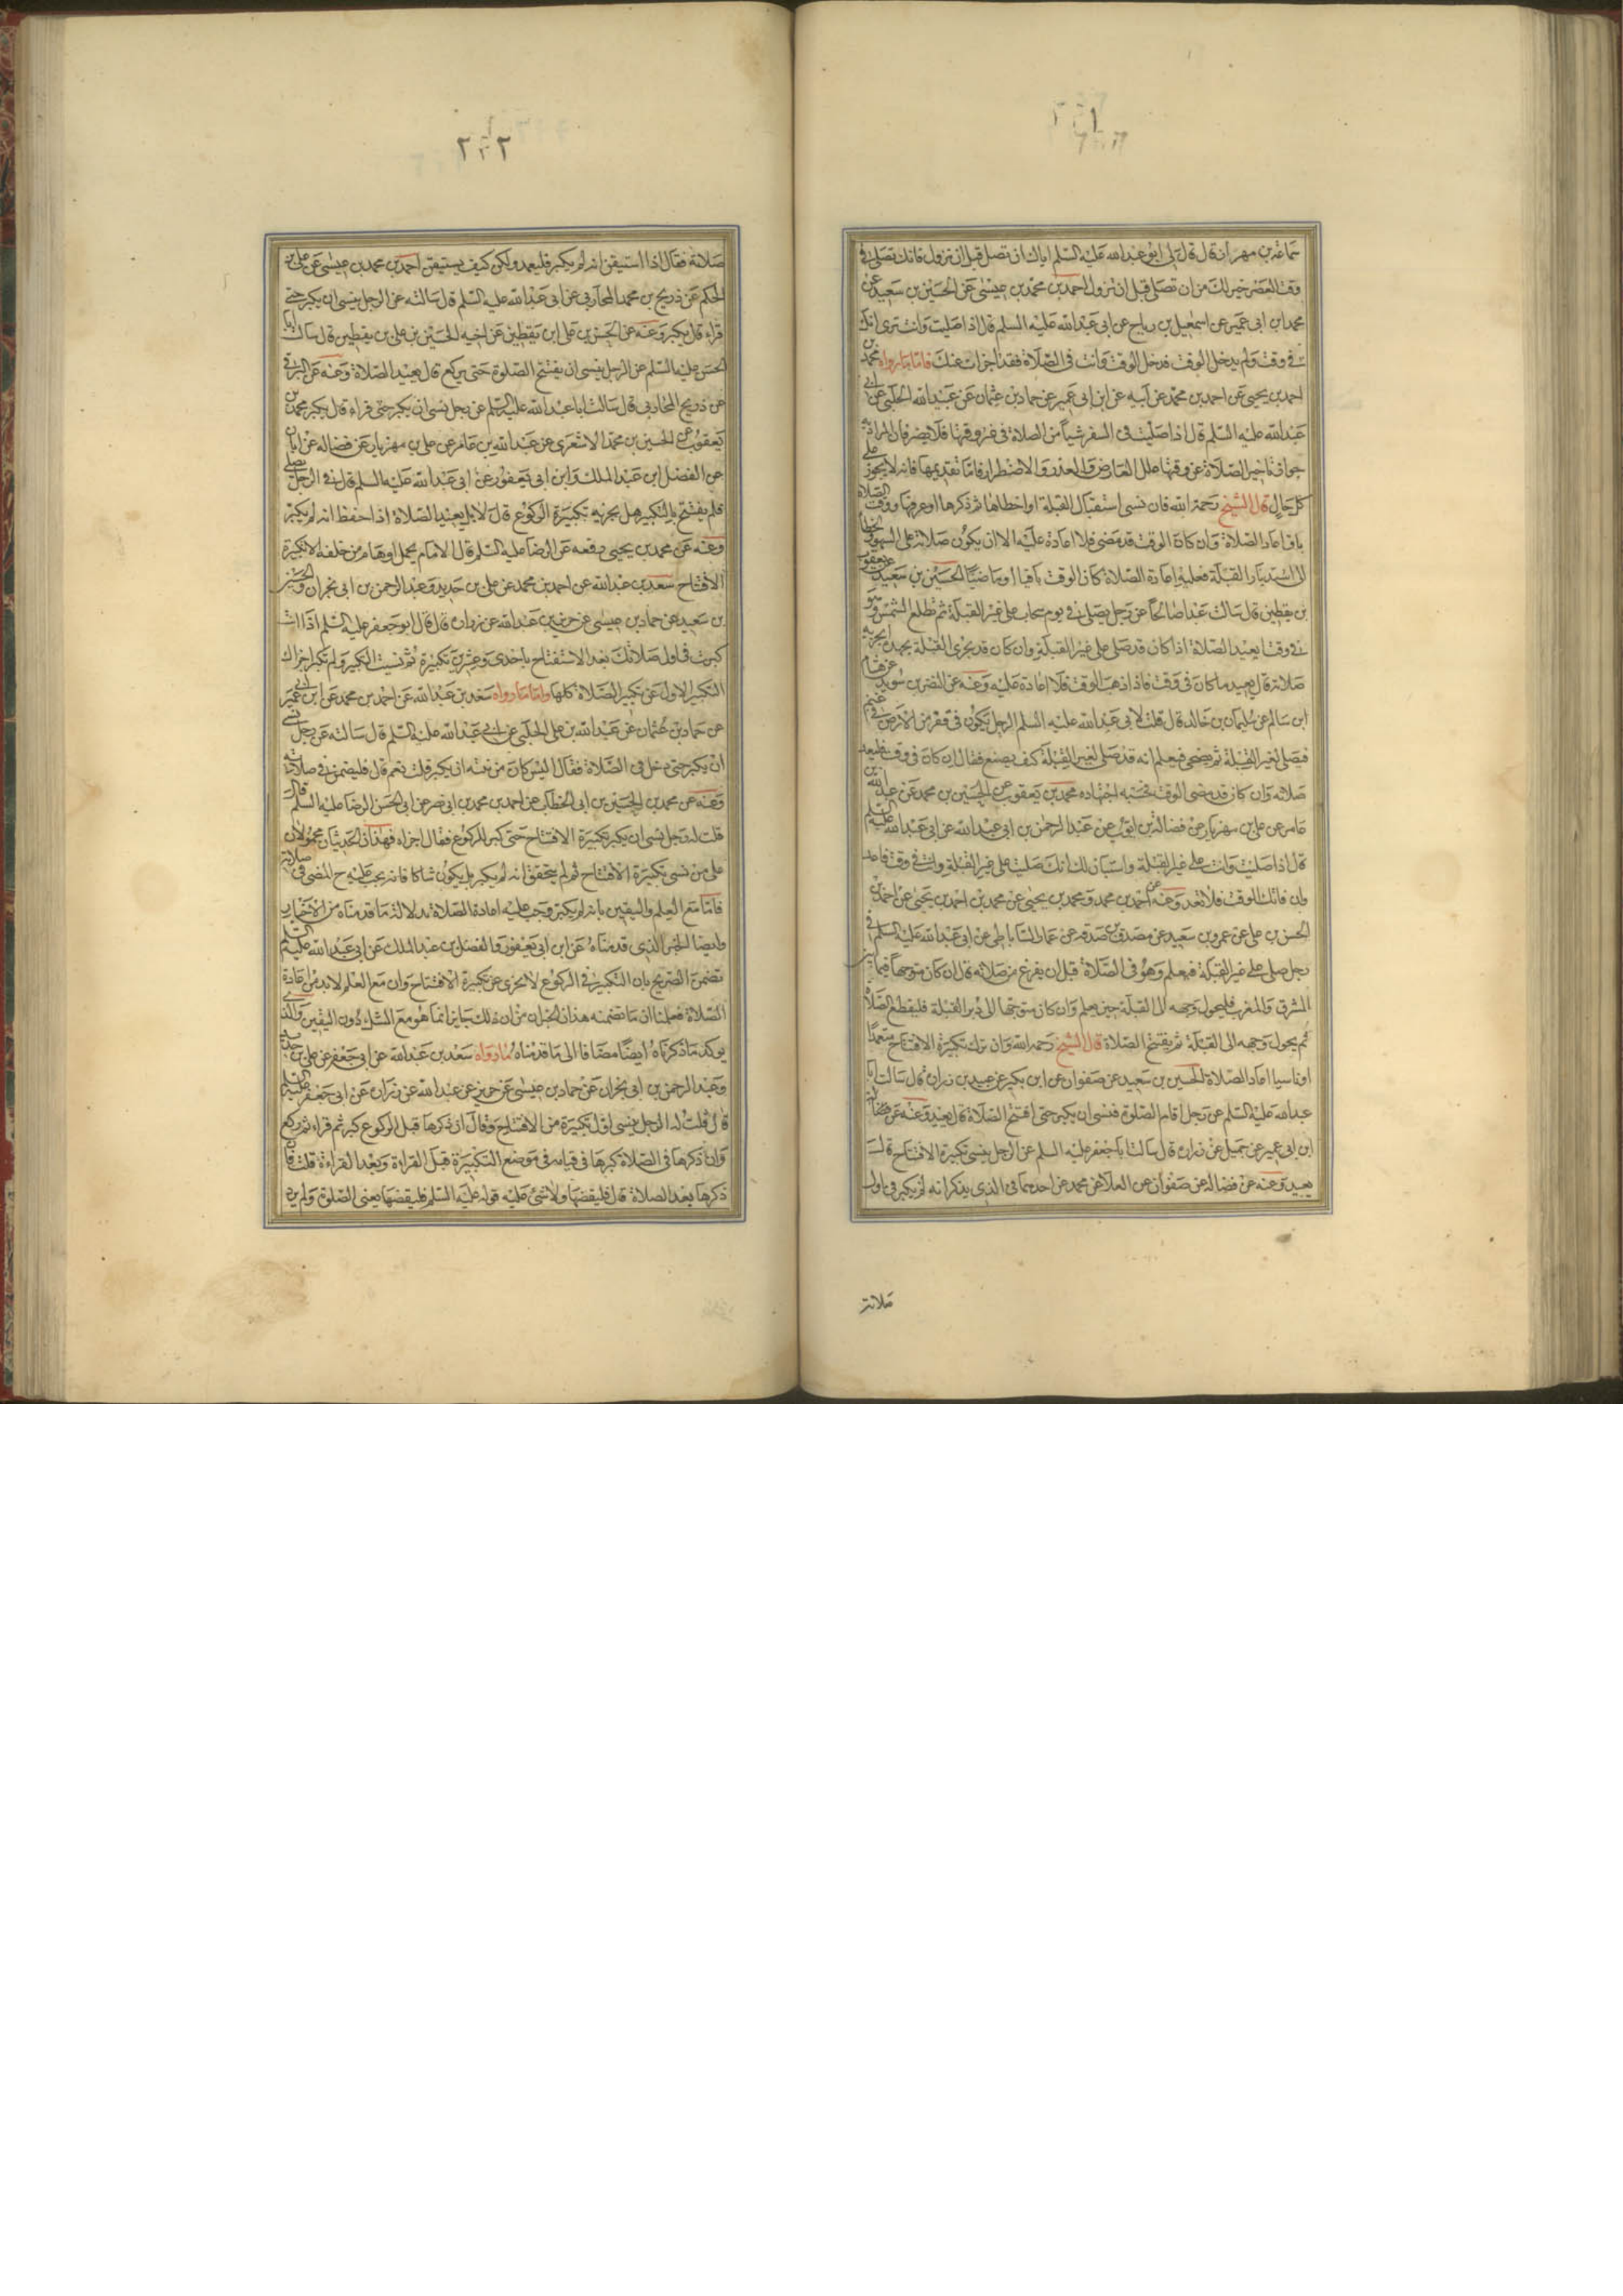 سماعة بن مهران قال قال لي ابو عبدالله عليه السلم اياك ان تصلي قبل ان تزول فانك تصلي في
وقت العصر خير لك من ان تصلي قبل ان تزول احمد بن محمد بن عيسى عن الحسين بن سعيد عن
محمد بن ابي عمير عن اسمعيل بن رباح عن ابي عبدالله عليه السلم قال اذا صليت وانت ترى انك
في وقت ولم يدخل الوقت فدخل الوقت وانت في الصلاة فقد اجزات عنك فاما ما رواه محمد بن
احمد بن يحيى عن احمد بن محمد عن ابيه عن ابن ابي عمير عن حماد بن عثمان عن عبيد الله الحلبي عن ابي
عبدالله عليه السلم قال اذا صليت في السفر شيئا من الصلاة في غير وقتها فلا يضر فان المراد به
جواز تاخير الصلاة عن وقتها لعلل العارض والعذر والاضطرار فاما تقديمها فانه لا يجوز على
كل حال قال الشيخ رحمة الله فان نسي استقبال القبلة او اخطاها ثم ذكرها او عرفها ووقت الصلاة
باق اعاد الصلاة وان كان الوقت قد مضى فلا اعادة عليه الا ان يكون صلاته على السهو والخطا
الى استدبار القبلة فعليه اعادة الصلاة كان الوقت باقيا او ماضيا الحسين بن سعيد عن يعقوب
بن يقطين قال سالت عبدا صالحا عن رجل يصلي في يوم سحاب على غير القبلة ثم تطلع الشمس وهو
في وقت ايعيد الصلاة اذا كان قد صلى على غير القبلة وان كان قد تحرى القبلة بجهده ايجزيه
صلاته قال يعيد ما كان في وقت فاذا ذهب الوقت فلا اعادة عليه وعنه عن النضر بن سويد عن هشام
ابن سالم عن سليمان بن خالد قال قلت لابي عبدالله عليه السلم الرجل يكون في قفر من الارض في يوم غيم
فيصلي لغير القبلة ثم يضحي فيعلم انه قد صلى لغير القبلة كيف يصنع فقال ان كان في وقت فليعد
صلاته وان كان قد مضى الوقت فحسبه اجتهاده محمد بن يعقوب عن الحسين بن محمد عن عبد الله بن
عامر عن علي بن مهزيار عن فضالة بن ايوب عن عبد الرحمن بن ابي عبدالله عن ابي عبدالله عليه السلم
قال اذا صليت وانت على غير القبلة واستبان لك انك صليت على غير القبلة وانت في وقت فاعد
وان فاتك الوقت فلا تعد وعنه عن احمد بن محمد ومحمد بن يحيى عن محمد بن احمد بن يحيى عن احمد بن
الحسن بن علي عن عمرو بن سعيد عن مصدق بن صدقة عن عمار الساباطي عن ابي عبدالله عليه السلم في
رجل صلى على غير القبلة فيعلم وهو في الصلاة قبل ان يفرغ من صلاته قال ان كان متوجها فيما بين
المشرق والمغرب فليحول وجهه الى القبلة حين يعلم وان كان متوجها الى دبر القبلة فليقطع الصلاة
ثم يحول وجهه الى القبلة ثم يفتتح الصلاة قال الشيخ رحمه الله وان ترك تكبيرة الافتتاح متعمدا
او ناسيا اعاد الصلاة الحسين بن سعيد عن صفوان عن ابن بكير عن عبيد بن زرارة قال سالت ابا
عبدالله عليه السلم عن رجل اقام الصلوة فنسي ان يكبر حتى افتتح الصلاة قال يعيد وعنه عن فضالة
ابن ابي عمير عن جميل عن زرارة قال سالت ابا جعفر عليه السلم عن الرجل ينسى تكبيرة الافتتاح قال
يعيد وعنه عن فضالة عن صفوان عن العلاء عن محمد عن احدهما في الذي يذكر انه لم يكبر في اول
صلاته
٢٢٢
صلاته فقال اذا استيقن انه لم يكبر فليعد ولكن كيف يستيقن احمد بن محمد بن عيسى عن علي بن
الحكم عن ذريح بن محمد المحاربي عن ابي عبدالله عليه السلم قال سالته عن الرجل ينسى ان يكبر حتى
قراء قال يكبر وعنه عن الحسن بن علي ابن يقطين عن اخيه الحسين بن علي بن يقطين قال سالت ابا
الحسن عليه السلم عن الرجل ينسى ان يفتتح الصلوة حتى يركع قال يعيد الصلاة وعنه عن البرقي
عن ذريح المحاربي قال سالت ابا عبد الله عليه السلم عن رجل نسي ان يكبر حتى قراء قال يكبر محمد بن
يعقوب عن الحسين بن محمد الاشعري عن عبدالله بن عامر عن علي بن مهزيار عن فضاله عن ابان
عن الفضل ابن عبد الملك وابن ابي يعفور عن ابي عبدالله عليه السلم قال في الرجل يصلي
فلم يفتتح بالتكبير هل يجزيه تكبيرة الركوع قال لا بل يعيد الصلاة اذا حفظ انه لم يكبر
وعنه عن محمد بن يحيى رفعه عن الرضا عليه السلم قال الامام يحمل اوهام من خلفه الا تكبيرة
الافتتاح سعد بن عبدالله عن احمد بن محمد عن علي بن حديد وعبد الرحمن بن ابي نجران والحسين
بن سعيد عن حماد بن عيسى عن حريز بن عبدالله عن زرارة قال قال ابو جعفر عليه السلم اذا انت
كبرت في اول صلاتك بعد الاستفتاح باحدى وعشرين تكبيرة ثم نسيت التكبير ولم تكبر اجزاك
التكبير الاول عن تكبير الصلاة كلها واما ما رواه سعد بن عبدالله عن احمد بن محمد عن ابن ابي عمير
عن حماد بن عثمان عن عبدالله بن علي الحلبي عن ابي عبدالله عليه السلم قال سالته عن رجل نسي
ان يكبر حتى دخل في الصلاة فقال اليس كان من نيته ان يكبر قلت نعم قال فليمض في صلاته
وعنه عن محمد بن الحسين بن ابي الخطاب عن احمد بن محمد بن ابي نصر عن ابي الحسن الرضا عليه السلم قال
قلت له رجل نسي ان يكبر تكبيرة الافتتاح حتى كبر للركوع فقال اجزاه فهذان الحديثان محمولان
على من نسي تكبيرة الافتتاح ثم لم يتحقق انه لم يكبر بل يكون شاكا فانه يجب عليه ح المضي في صلاته
فاما مع العلم واليقين بانه لم يكبر وجب عليه اعادة الصلاة بدلالة ما قدمناه من الاخبار
وايضا الخبر الذي قدمناه عن ابن ابي يعفور والفضل بن عبد الملك عن ابي عبدالله عليه السلم
تضمن التصريح بان التكبير في الركوع لا تجزي عن تكبيرة الافتتاح وان مع العلم لابد من اعادة
الصلاة فعلمنا ان ما تضمنه هذان الخبران من ان ذلك جايز انما هو مع الشك دون اليقين والذي
يوكد ما ذكرناه ايضا مضافا الى ما قدمناه ما رواه سعد بن عبدالله عن ابي جعفر عن علي بن حديد
وعبد الرحمن بن ابي نجران عن حماد بن عيسى عن حريز عن عبدالله عن زرارة عن ابي جعفر عليه السلم
قال قلت له الرجل ينسى اول تكبيرة من الافتتاح وقال ان ذكرها قبل الركوع كبر ثم قراء ثم ركع
وان ذكرها في الصلاة كبرها في قيامه في موضع التكبيرة قبل القراءة وبعد القراءة قلت فان
ذكرها بعد الصلاة قال فليقضها ولا شيء عليه قوله عليه السلم فليقضها يعني الصلوة ولم يرد